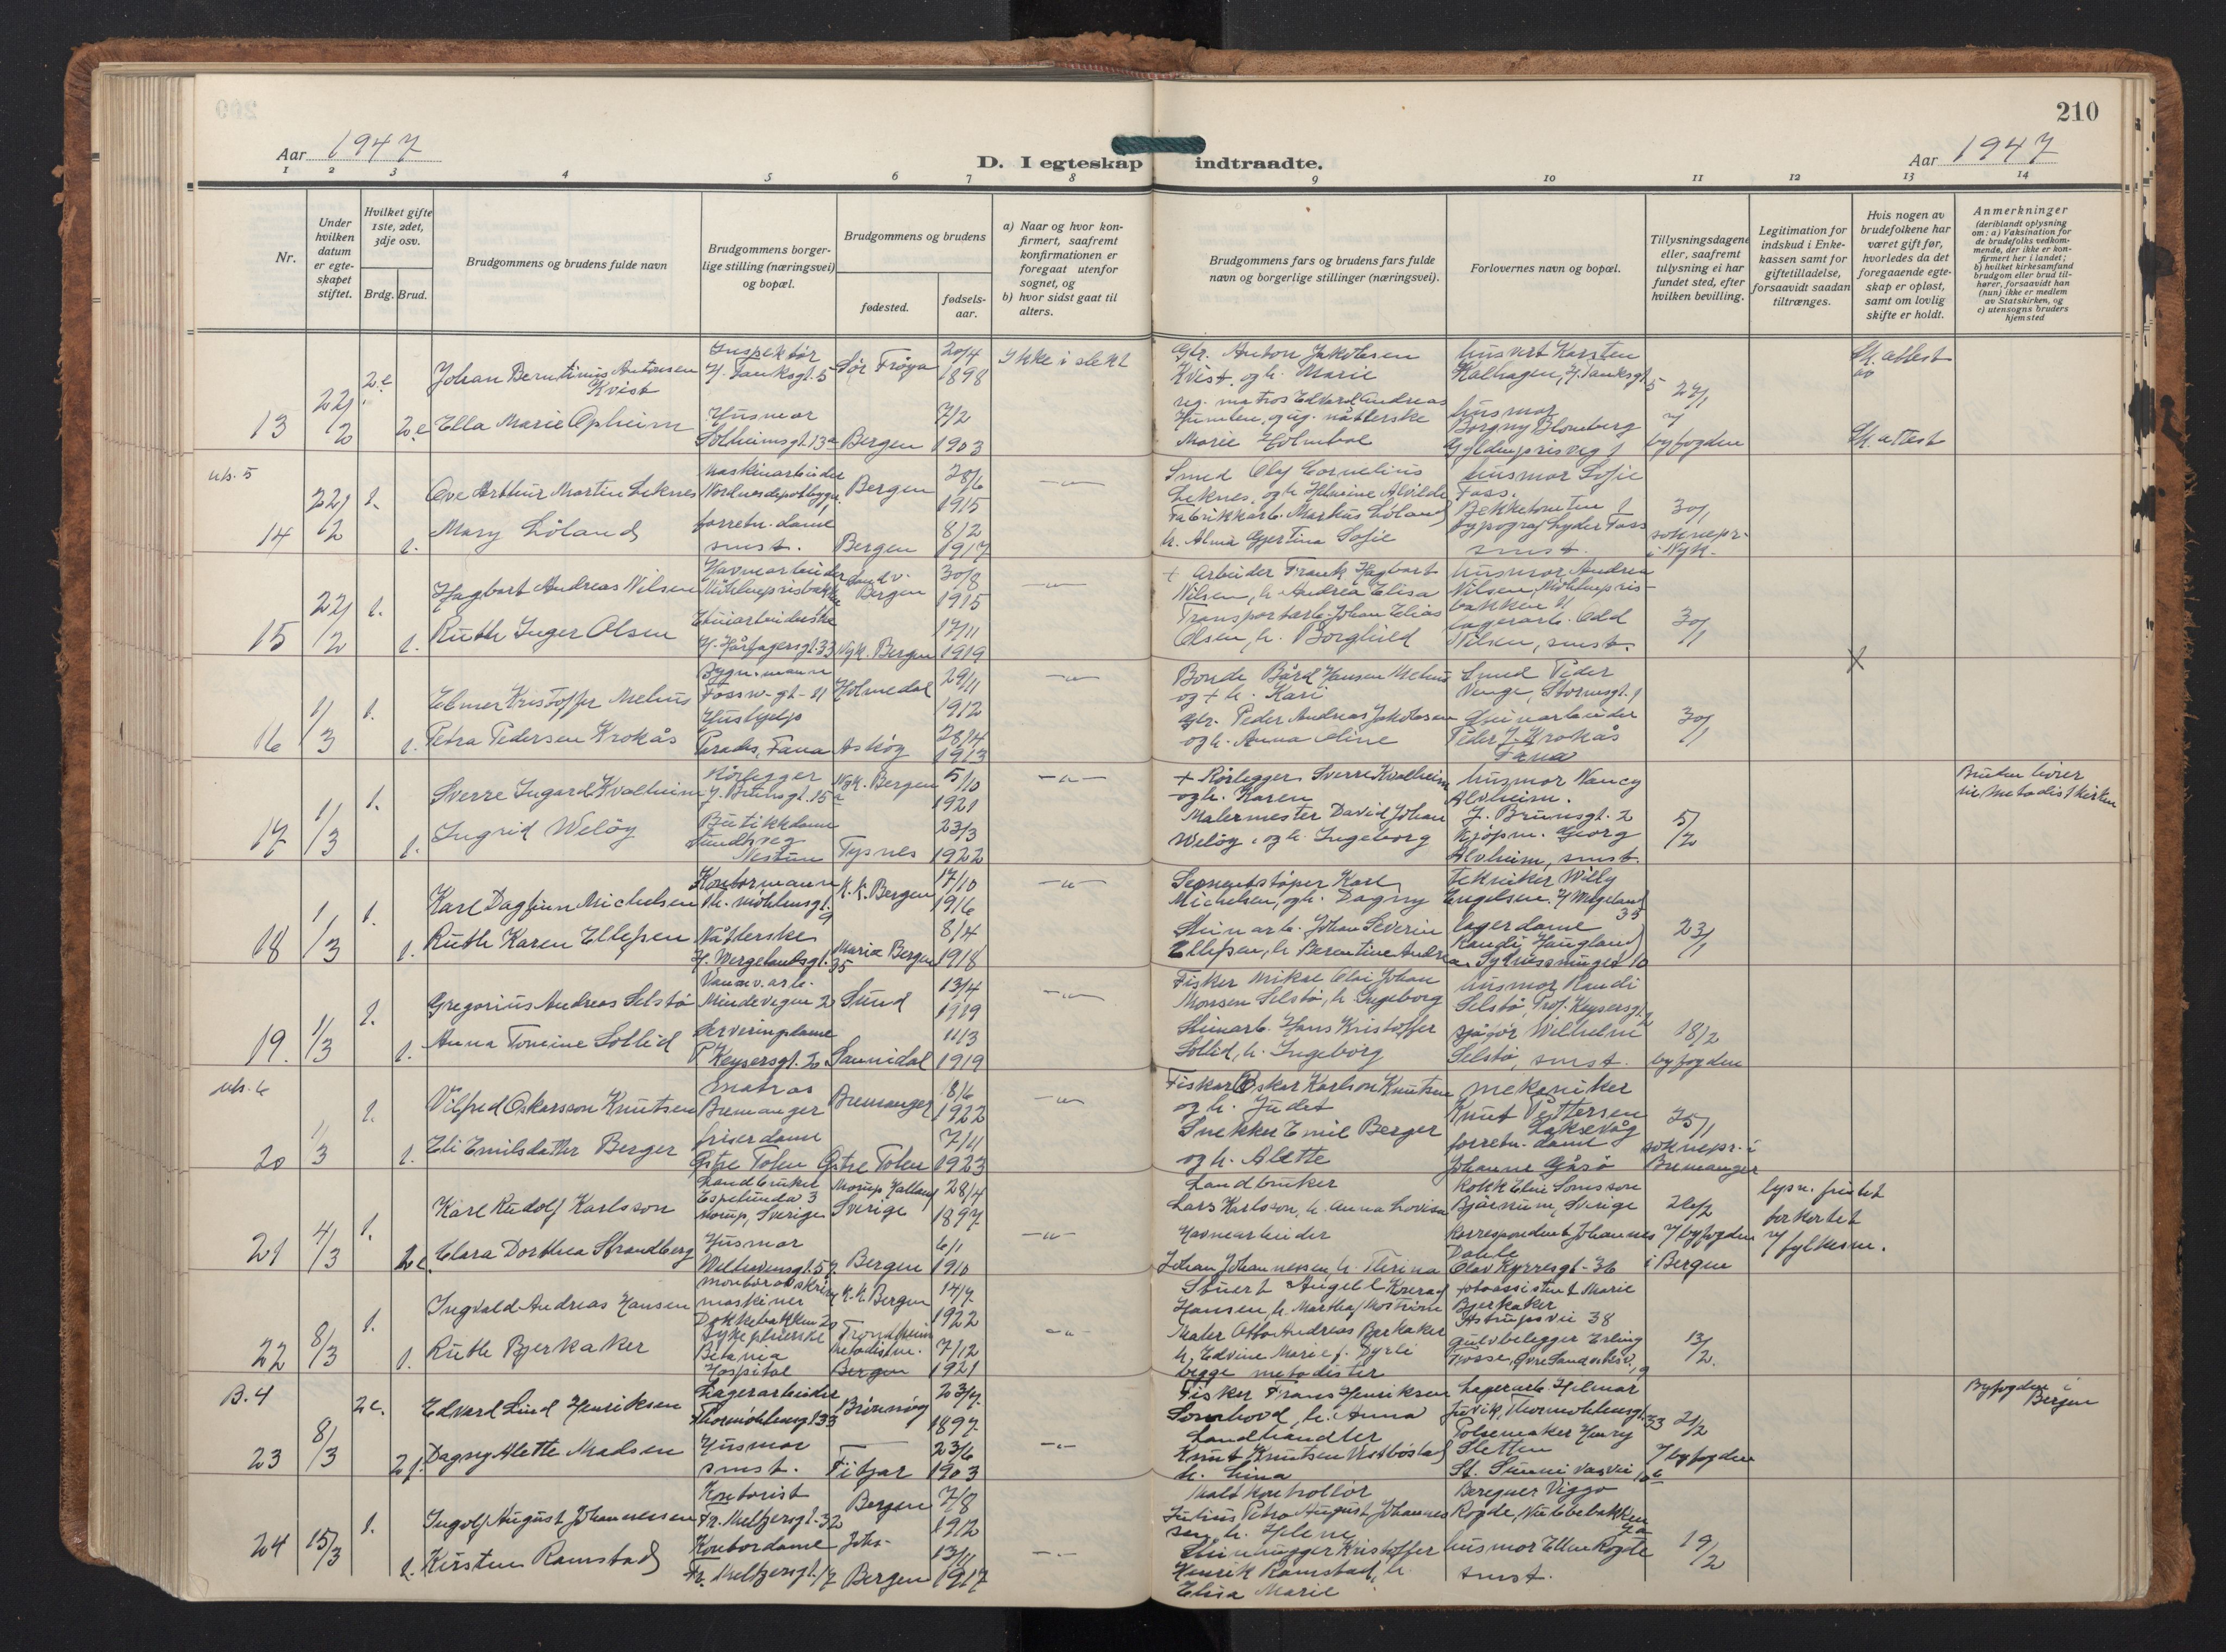 210
Aar 1947
D. I egteskap indtraadte.
Aar 1947
1 2 3 4 5 6 7 8 9 10 11 12 13 14
Nr.
Under hvilken datum er egteskapet stiftet.
Hvilket gifte 1ste, 2det, 3dje osv.
Brdg. Brud.
Brudgommens og brudens fulde navn
Brudgommens borgerlige stilling (næringsvei) og bopæl.
Brudgommens og brudens
fødested.
fødselsaar.
a) Naar og hvor konfirmert, saafremt konfirmationen er foregaat utenfor sognet, og
b) hvor sidst gaat til alters.
Brudgommens fars og brudens fars fulde navn og borgerlige stillinger (næringsvei).
Forlovernes navn og bopæl.
Tillysningsdagene eller, saafremt tillysning ei har fundet sted, efter hvilken bevilling.
Legitimation for indskud i Enkekassen samt for giftetilladelse, forsaavidt saadan tiltrænges.
Hvis nogen av brudefolkene har været gift før, hvorledes da det foregaaende egteskap er opløst, samt om lovlig skifte er holdt.
Anmerkninger
(deriblandt oplysning om: a) Vaksination for de brudefolks vedkommende, der ikke er konfirmert her i landet;
b) hvilket kirkesamfund brudgom eller brud tilhører, forsaavidt han (hun) ikke er medlem av Statskirken, og
c) utensogns bruders hjemsted
13 22/2 2e Johan Berntinus Antonsen Kvist Inspektør 5 Sör Fröya 20/4 1898 Ikke i slekt
Gbr. Anton Jakobsen Kvist, og h. Marie
husvert Karsten Kalhagen, 5
Sk. attest
2e Ella Marie Opheim Husmor Solheimsgt. 13a Bergen 7/2 1903
matros Edvard Andreas
husmor Borgny Blomberg
byfogden
Sk. attest
uts. 5
14 22/2 1. Ove Arthur Martin Leknes Maskinarbeider Bergen 28/6 1915
Smed Olaf Cornelius Leknes, og h
husmor Sofie Foss.
1. Mary Löland forretn. dame smst. Bergen 8/2 1917
Fabrikkarb. Markus Löland h. Alma Gjertina Sofie
typograf Lyder Foss smst.
30/1 soknepr. i Nyk.
15 22/2 1. Hagbart Andreas Nilsen Havnearbeider Bergen 30/8 1915
+ Arbeider Frank Hagbart Nilsen, h Andrea Elisa
husmor Andrea Nilsen,
1. Ruth Inger Olsen 33 Nyk. Bergen 17/11 1919
Transportarb. Johan Elias Olsen, h. Borghild
lagerarb. Odd Nilsen, smst.
30/1
X
16 1/3 1. Elmer Kristoffer Melnes Bygn.mann Holmedal 29/11 1912
Bonde Bård Hansen og + h. Kari
Smed Peder Venge, Stormsgt. 1
1. Petra Pedersen Krokås Hushjelp Paradis, Fana Asköy 28/4 1913
Gbr. Peder Andreas Jakobsen og h. Anna Oline
Peder J. Krokås Fana
30/1
17 1/3 1. Sverre Ingard Kvalheim Rörlegger J. Brunsgt. 15 Nyk. Bergen 5/10 1921
+ Rörlegger Sverre Kvalheim og h. Karen
husmor Nancy Alvheim. J. Brunsgt. 2
1. Ingrid Welöy Butikkdame Nestun Tysnes 23/3 1922
Malermester David Johan Welöy, og h. Ingeborg
Kjöpm. Georg Alvheim, smst.
5/2
Bruden hörer til metodistkirken
18 1/3 1. Karl Dagfinn Michelsen Kontormann 9 K.K. Bergen 17/10 1916
Sementstöper Karl Michelsen, og h. Dagny
Tekniker Willy Engelsen. 35
1. Ruth Karen Ellefsen Nåtlerske H. Wergelandsgt. 35 Maria Bergen 8/4 1918
Steinarb. Johan Severin Ellefsen, h Berentine Andrea
lagerdame Randi Haugland Sydnessmuget 10
23/1
19. 1/3 1. Gregorius Andreas Selstö Mindevegen 2 Sund 13/4 1919
Fisker Mikal Olai Johan Monsen Selstö, h Ingeborg
husmor Randi Selstö, Prof. Keysersgt. 2
1. Anna Tomine Sollid Serveringsdame P. Keysersgt. 20 Sannidal 11/3 1919
Steinarb. Hans Kristoffer Sollid, h. Ingeborg
sjåför Wilhelm Selstö, smst.
18/2 byfogden
uts. 6
20 1/3 1. Vilfred Oskarsson Knutsen matros Bremanger Bremanger 8/6 1922
Fisker Oskar Karlson Knutsen og h. Judet
mekaniker Knut Pettersen Laksevåg
1. Eli Emilsdatter Berger frisördame Östre Toten Östre Toten 7/11 1923
Snekker Emil Berger og h. Alette
forretn. dame Johanne Gåsö
25/1 soknepr. i Bremanger
21 4/3 1. Karl Rudolf Karlsson Landbruker Espelunda 3 Morup, Sverige Morup, Halland Sverige 28/4 1897
Landbruker Lars Karlsson, h. Anna Lovisa
Bjärnum, Sverige
26/2
lysn. fristet forkortet fylkesm.
2e. Clara Dorthea Strandberg Husmor Bergen 6/1 1910
Havnearbeider Johan Johannessen, h. Thrina
Korrespondent Johannes Dahle Olav Kyrresgt. 36
byfogden i Bergen
22 8/3 1. Ingvald Andreas Hansen maskiner Dokkebakken 20 K.K. Bergen 14/7 1922
Stuert Angell Konrad Hansen, h. Martha f. Moström
Marie Bjerkaker Astrupsvei 38
1. Ruth Bjerkaker Sykepleierske Betania Hospital Trondheim Bergen 7/12 1921
Maler Otto Andreas Bjerkaker h. Edvine Marie f. Dyrli begge metodister
gulvbelegger Erling Fosse,
13/2.
B. 4
23 8/3 2e. Edvard Lind Henriksen Lagerarbeider Thormöhlensgt. 33 Brönnöy 23/7. 1897
Fisker Frans Henriksen Somhovd, h. Anna
Lagerarb. Helmar Juvik, Thormöhlensgt. 33
21/2
Byfogden i Bergen
2f. Dagny Alette Madsen Husmor smst. Fitjar 23/6 1903
Landhandler Knut Knutsen Vestböstad h. Lina
Pölsemaker Henry Sletten
byfogden
24 15/3 1. Ingolf August Johannessen Kontorist Fr. Meltzersgt. 32 Bergen 7/8 1912
Maltkontrollör Julius Petro August Johannessen, h. Helene
Beregner Viggo Rogde, Nubbebakken
1. Kirsten Ramstad Kontordame Fr. Meltzersgt. 17 Johs. Bergen 13/11 1917
Steinhugger Kristoffer Henrik Ramstad, h. Elisa Marie
husmor Ellen Rogde smst.
19/2